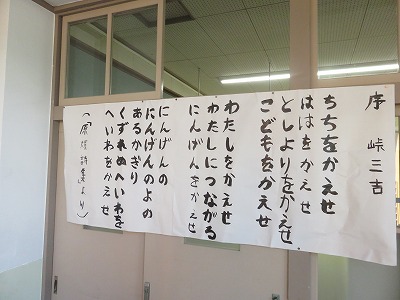 序　峠三吉
ちちをかえせ
ははをかえせ
としよりをかえせ
こどもをかえせ
わたしをかえせ
わたしにつながる
にんげんをかえせ
にんげんの
にんげんのよの
あるかぎり
くずれぬへいわを
へいわをかえせ
(原爆詩集より)